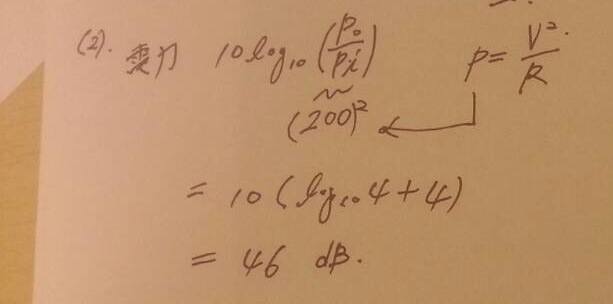 (2). 變为 10 log₁₀ (Po/Pi) P = V²/R
(200)²
= 10 (log₁₀ 4 + 4)
= 46 dB.